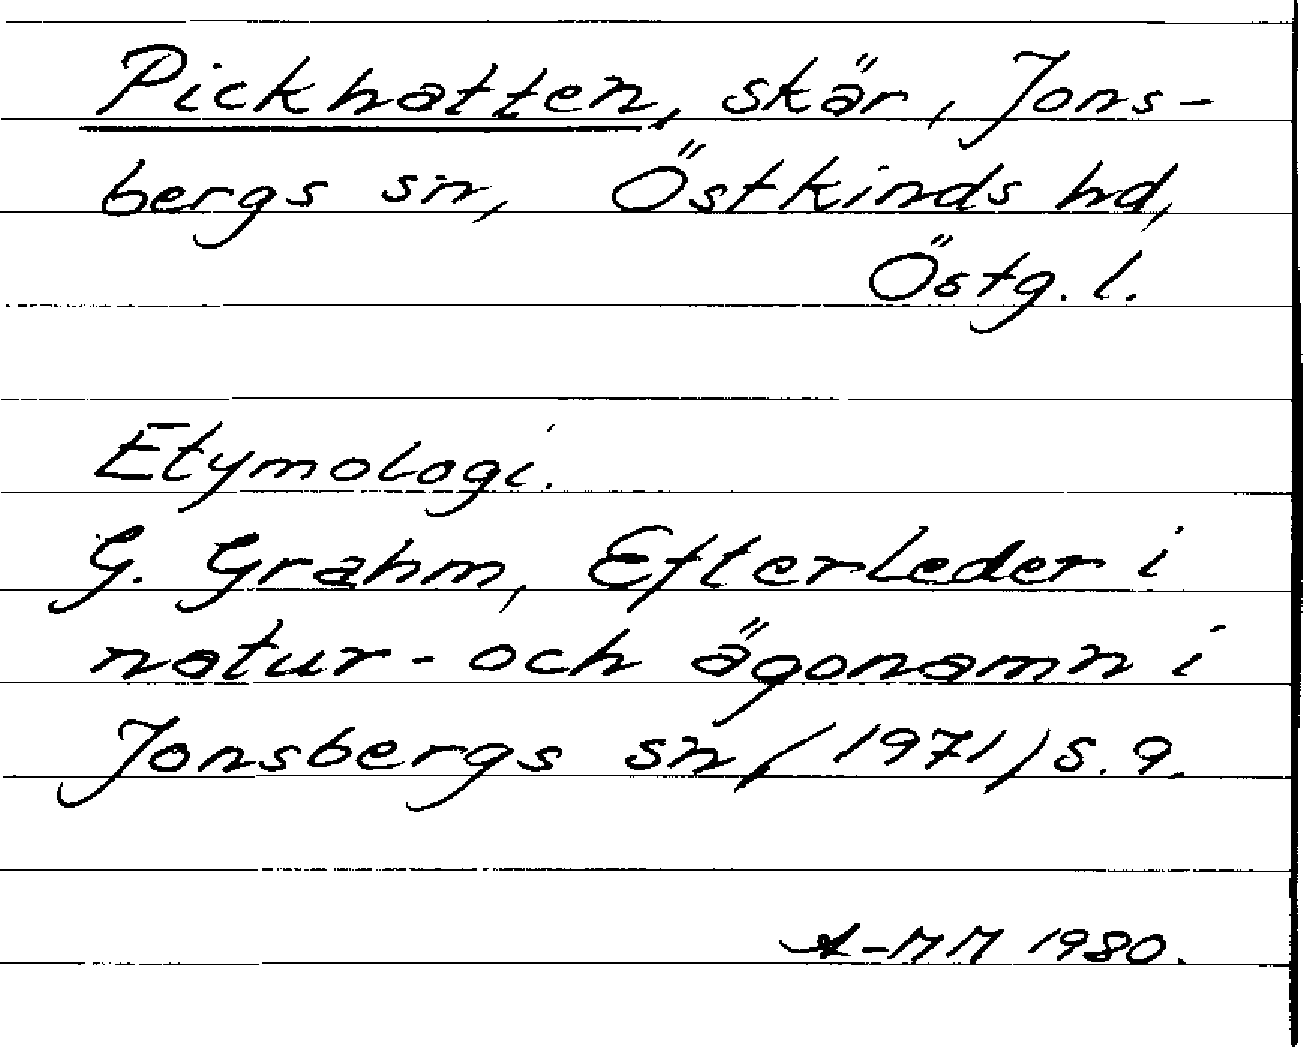 Pickhatten, skär, Jons-
bergs sn, Östkinds hd,
Östg. l.
Etymologi.
G. Grahm, Efterleder i
natur- och ägonamn i
Jonsbergs sn, /1971/ s. 9.
A-MM 1980.